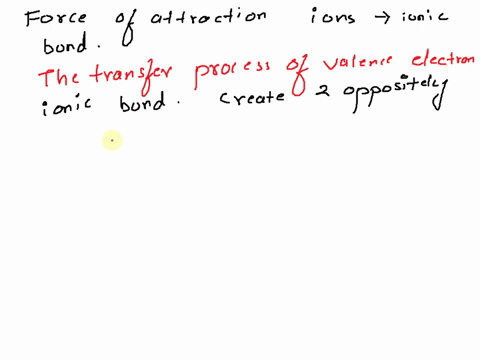 Force of attraction ions → ionic
bond.
The transfer process of valence electron
ionic bond. create 2 oppositely